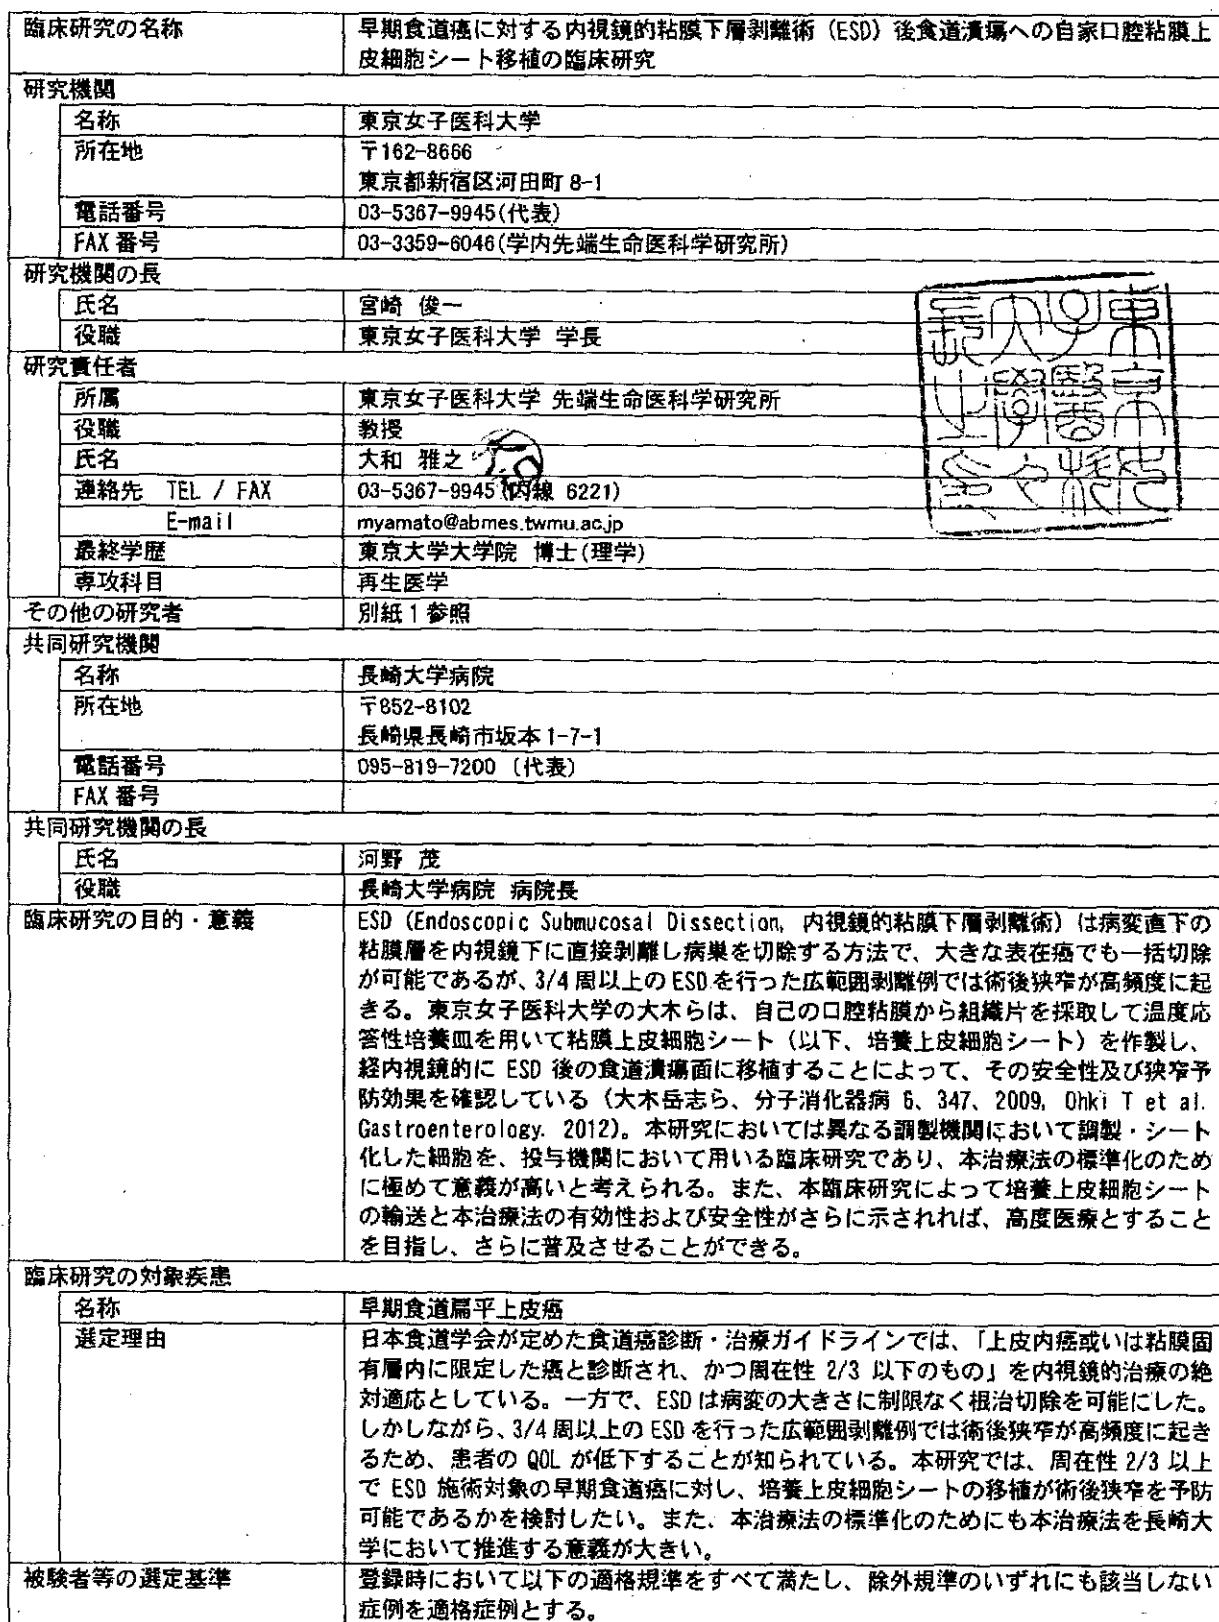 臨床研究の名称
早期食道癌に対する内視鏡的粘膜下層剥離術（ESD）後食道潰瘍への自家口腔粘膜上
皮細胞シート移植の臨床研究
研究機関
名称
東京女子医科大学
所在地
〒162-8666
東京都新宿区河田町 8-1
電話番号
03-5367-9945(代表)
FAX 番号
03-3359-6046(学内先端生命医科学研究所)
研究機関の長
氏名
宮崎 俊一
役職
東京女子医科大学 学長
研究責任者
所属
東京女子医科大学 先端生命医科学研究所
役職
教授
氏名
大和 雅之
連絡先 TEL / FAX
03-5367-9945(内線 6221)
E-mail
myamato@abmes.twmu.ac.jp
最終学歴
東京大学大学院 博士(理学)
専攻科目
再生医学
その他の研究者
別紙 1 参照
共同研究機関
名称
長崎大学病院
所在地
〒852-8102
長崎県長崎市坂本 1-7-1
電話番号
095-819-7200 （代表）
FAX 番号
共同研究機関の長
氏名
河野 茂
役職
長崎大学病院 病院長
臨床研究の目的・意義
ESD（Endoscopic Submucosal Dissection, 内視鏡的粘膜下層剥離術）は病変直下の
粘膜層を内視鏡下に直接剥離し病巣を切除する方法で、大きな表在癌でも一括切除
が可能であるが、3/4 周以上の ESD を行った広範囲剥離例では術後狭窄が高頻度に起
きる。東京女子医科大学の大木らは、自己の口腔粘膜から組織片を採取して温度応
答性培養皿を用いて粘膜上皮細胞シート（以下、培養上皮細胞シート）を作製し、
経内視鏡的に ESD 後の食道潰瘍面に移植することによって、その安全性及び狭窄予
防効果を確認している（大木岳志ら、分子消化器病 6、347、2009, Ohki T et al.
Gastroenterology. 2012）。本研究においては異なる調製機関において調製・シート
化した細胞を、投与機関において用いる臨床研究であり、本治療法の標準化のため
に極めて意義が高いと考えられる。また、本臨床研究によって培養上皮細胞シート
の輸送と本治療法の有効性および安全性がさらに示されれば、高度医療とすること
を目指し、さらに普及させることができる。
臨床研究の対象疾患
名称
早期食道扁平上皮癌
選定理由
日本食道学会が定めた食道癌診断・治療ガイドラインでは、「上皮内癌或いは粘膜固
有層内に限定した癌と診断され、かつ周在性 2/3 以下のもの」を内視鏡的治療の絶
対適応としている。一方で、ESD は病変の大きさに制限なく根治切除を可能にした。
しかしながら、3/4 周以上の ESD を行った広範囲剥離例では術後狭窄が高頻度に起き
るため、患者の QOL が低下することが知られている。本研究では、周在性 2/3 以上
で ESD 施術対象の早期食道癌に対し、培養上皮細胞シートの移植が術後狭窄を予防
可能であるかを検討したい。また、本治療法の標準化のためにも本治療法を長崎大
学において推進する意義が大きい。
被験者等の選定基準
登録時において以下の適格規準をすべて満たし、除外規準のいずれにも該当しない
症例を適格症例とする。